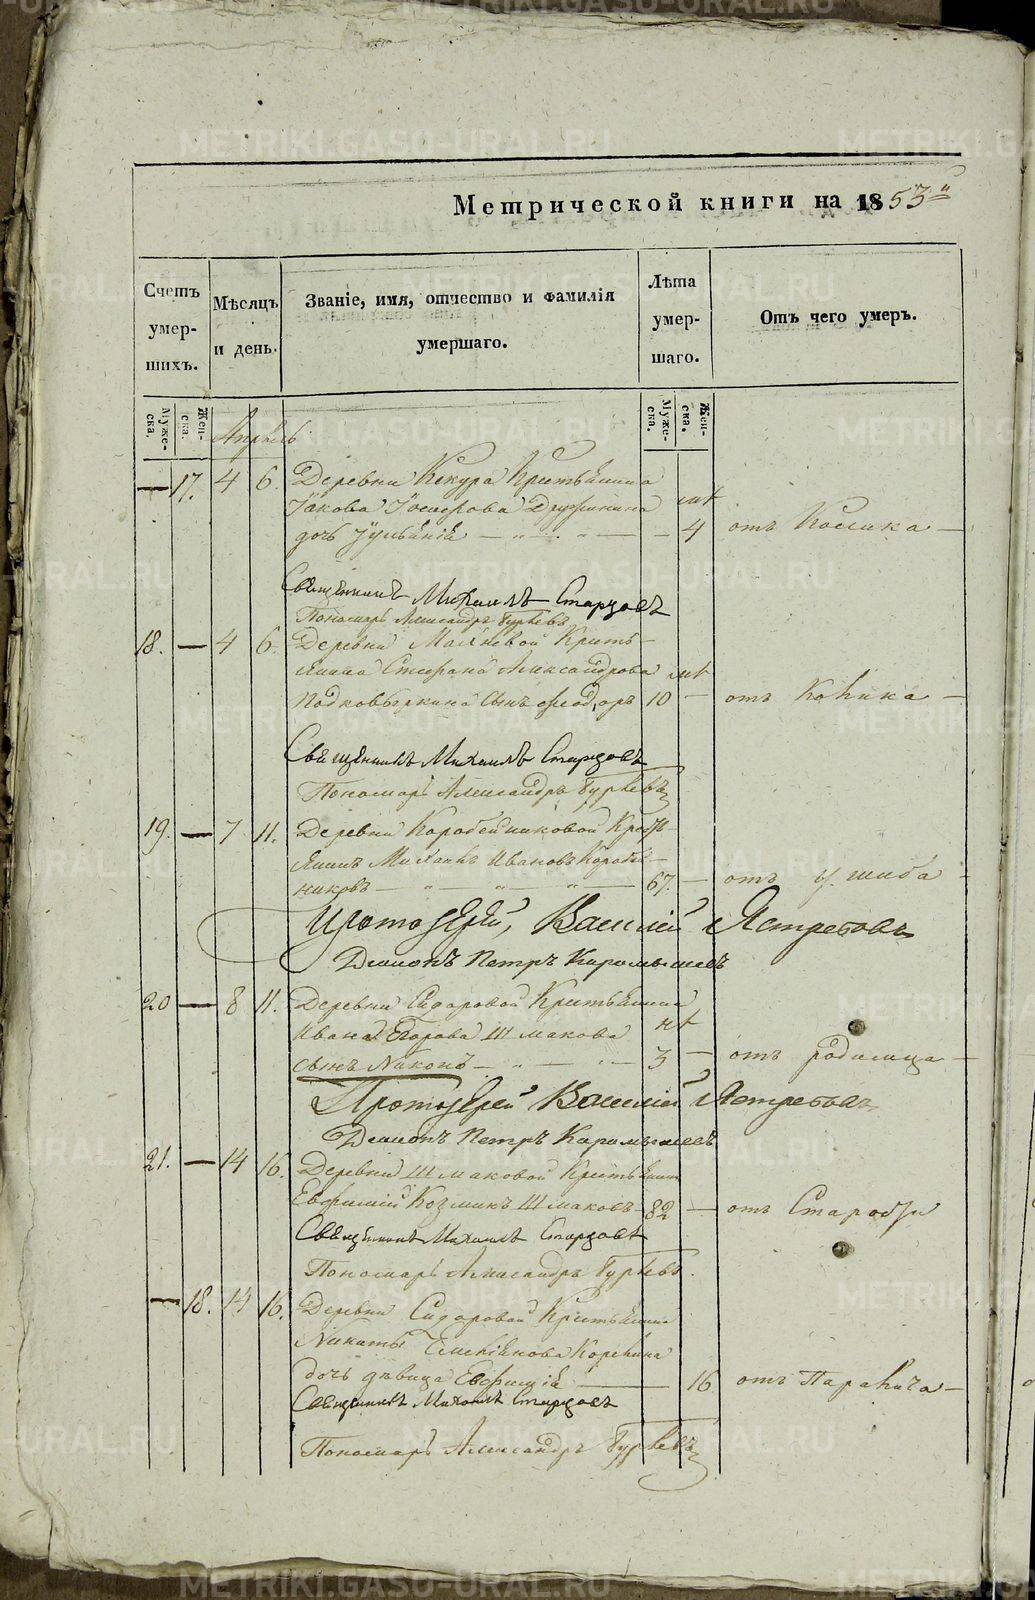 Метрической книги на 1853й
Счетъ умер-шихъ.
Мѣсяцъ и день.
Званіе, имя, отчество и фамилія умершаго.
Лѣта умер-шаго.
Отъ чего умеръ.
Муже-ска.
Жен-ска.
Муже-ска.
Жен-ска.
Апрѣль
— 17. 4 6. Деревни Кекура Крестьянина
Іакова Іосифова Дружинина
дочь Іуліанія — — 4 отъ Кослика —
Священникъ Михаилъ Старцовъ
Пономарь Александръ Гурьевъ
18. — 4 6. Деревни Крестья-
янина Стефана Александрова
Подковыркина сынъ Феодоръ 10 — отъ —
Священникъ Михаилъ Старцовъ
Пономарь Александръ Гурьевъ
19. — 7 11. Деревни Коробейниковой Кресть-
янинъ Михаилъ Ивановъ Коробей-
никовъ — 67. — отъ ушиба —
Протоіерей Василій Ястребовъ
Діаконъ Петръ Карамышевъ
20 — 8 11. Деревни Сидоровой Крестьянина
Ивана Егорова Шмакова
сынъ Никонъ — 3 — отъ родимца —
Протоіерей Василій Ястребовъ
Діаконъ Петръ Карамышевъ
21. — 14 16. Деревни Шмаковой Крестьянинъ
Евфимій Козминъ Шмаковъ 82 — отъ Старости
Священникъ Михаилъ Старцовъ
Пономарь Александръ Гурьевъ.
— 18. 14 16. Деревни Сидоровой Крестьянина
Никиты Корекина
дочь дѣвица Евфимія — 16 отъ Паралича —
Священникъ Михаилъ Старцовъ
Пономарь Александръ Гурьевъ
METRIKI.GASO-URAL.RU